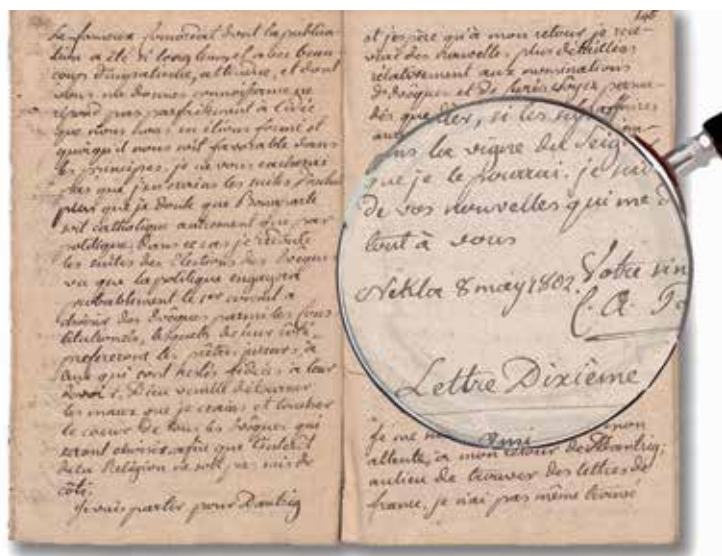 Le fameux             dont la publica-
tion a été si longtemps et avec beau-
coup d'impatience, attendue, et dont
vous me donnez connoissance ne
répond pas parfaitement à l'idée
que nous nous en étions formé et
quoiqu'il nous soit favorable dans
les principes, je ne vous cacherai
pas que j'en crains les suites d'autant
plus que je doute que Bonaparte
soit catholique autrement que par
politique. Dans ce cas je redoute
les suites des Elections des Evêques
vu que la politique engagera
probablement le 1er consul a
choisir des Evêques parmi les Cons
titutionnels, lesquels de leur côté
prefereront les prêtres jureurs, à
ceux qui sont restés fidèles à leur
devoir. Dieu veuille détourner
les maux que je crains et toucher
le coeur de tous les Evêques qui
seront choisis, afin que l'intérêt
de la Religion ne soit pas mis de
côté.
Je vais partir pour Dantzig
et j'espère qu'à mon retour je rece-
vrai des nouvelles plus détaillées
relativement aux nominations
d'Evêques et de Curés. Soyez persua-
dés que dès, si les
dans la vigne du Seig
que je le pourrai. je
de vos nouvelles qui me d
tout à vous
Nekla 8 may 1802. Votre
C. A.
Lettre Dixième
Je me                mon
attente, à mon retour de Dantzig;
au lieu de trouver des lettres de
france, je n'ai pas même trouvé